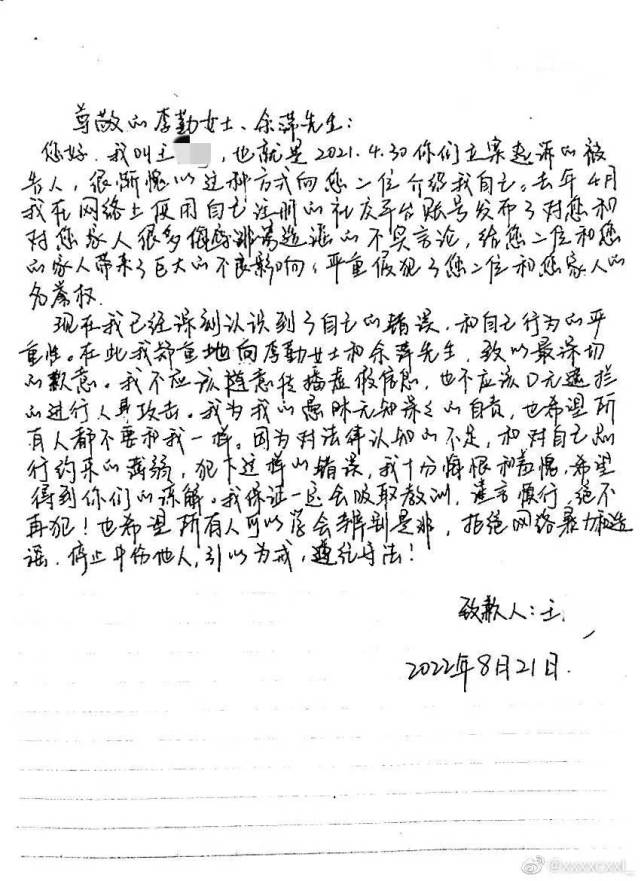 尊敬的李勤女士、余萍先生：
您好，我叫王，也就是2021.4.30你们立案起诉的被
告人，很惭愧以这种方式向您二位介绍我自己。去年4月
我在网络上使用自己注册的社交平台账号发布了对您和
对您家人很多侮辱诽谤造谣的不实言论，给您二位和您
的家人带来了巨大的不良影响，严重侵犯了您二位和您家人的
名誉权。
现在我已经深刻认识到了自己的错误，和自己行为的严
重性。在此我郑重地向李勤女士和余萍先生，致以最深切
的歉意。我不应该随意传播虚假信息，也不应该口无遮拦
的进行人身攻击。我为我的愚昧无知深深的自责，也希望所
有人都不要和我一样。因为对法律认知的不足，和对自己言
行约束的薄弱，犯下这样的错误，我十分悔恨和羞愧，希望
得到你们的谅解。我保证一定会吸取教训，谨言慎行，绝不
再犯！也希望所有人可以学会辨别是非，拒绝网络暴力和造
谣，停止中伤他人，引以为戒，遵纪守法！
致歉人：王
2022年8月21日.
@xxxxcxxl_